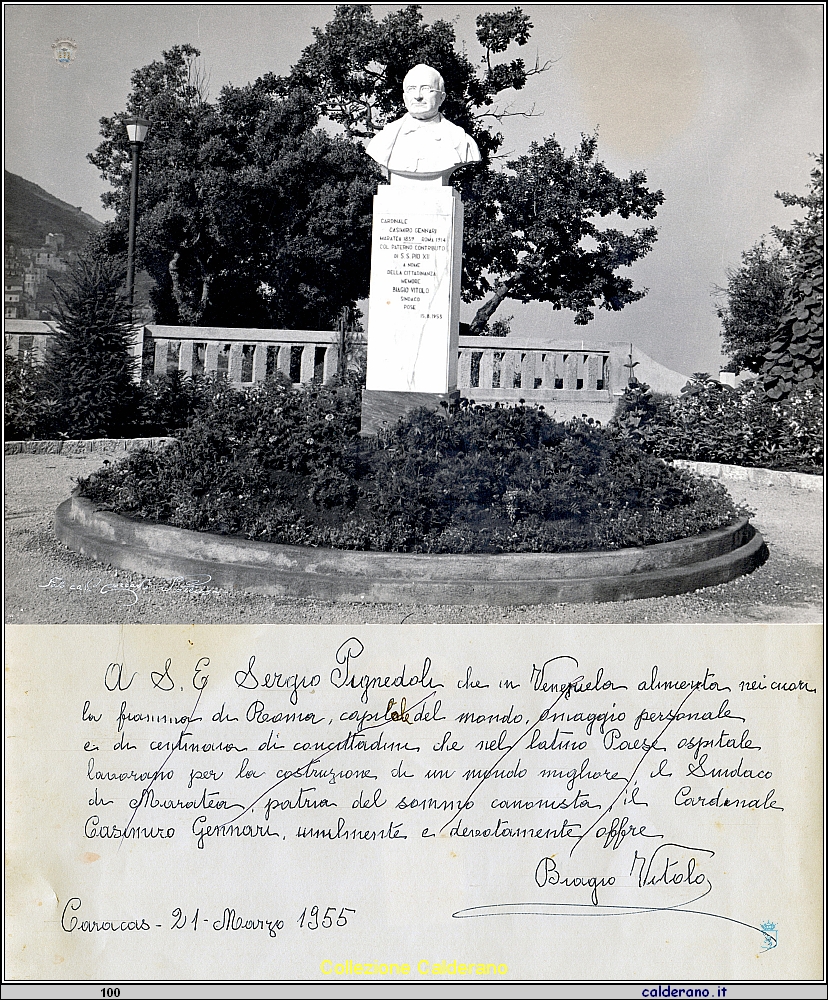 CARDINALE
CASIMIRO GENNARI
MARATEA 1839 ROMA 1914
COL PATERNO CONTRIBUTO
DI S.S. PIO XII
A NOME
DELLA CITTADINANZA
MEMORE
BIAGIO VITOLO
SINDACO
POSE
15.8.1955
A S. E Sergio Pignedoli che in Venezuela alimenta nei cuori
la fiamma di Roma, capitale del mondo, omaggio personale
e di centinaia di concittadini che nel latino Paese ospitale
lavorano per la costruzione di un mondo migliore, il Sindaco
di Maratea, patria del sommo canonista, il Cardinale
Casimiro Gennari, umilmente e devotamente offre
Biagio Vitolo
Caracas - 21 - Marzo 1955
Collezione Calderano
100
calderano.it